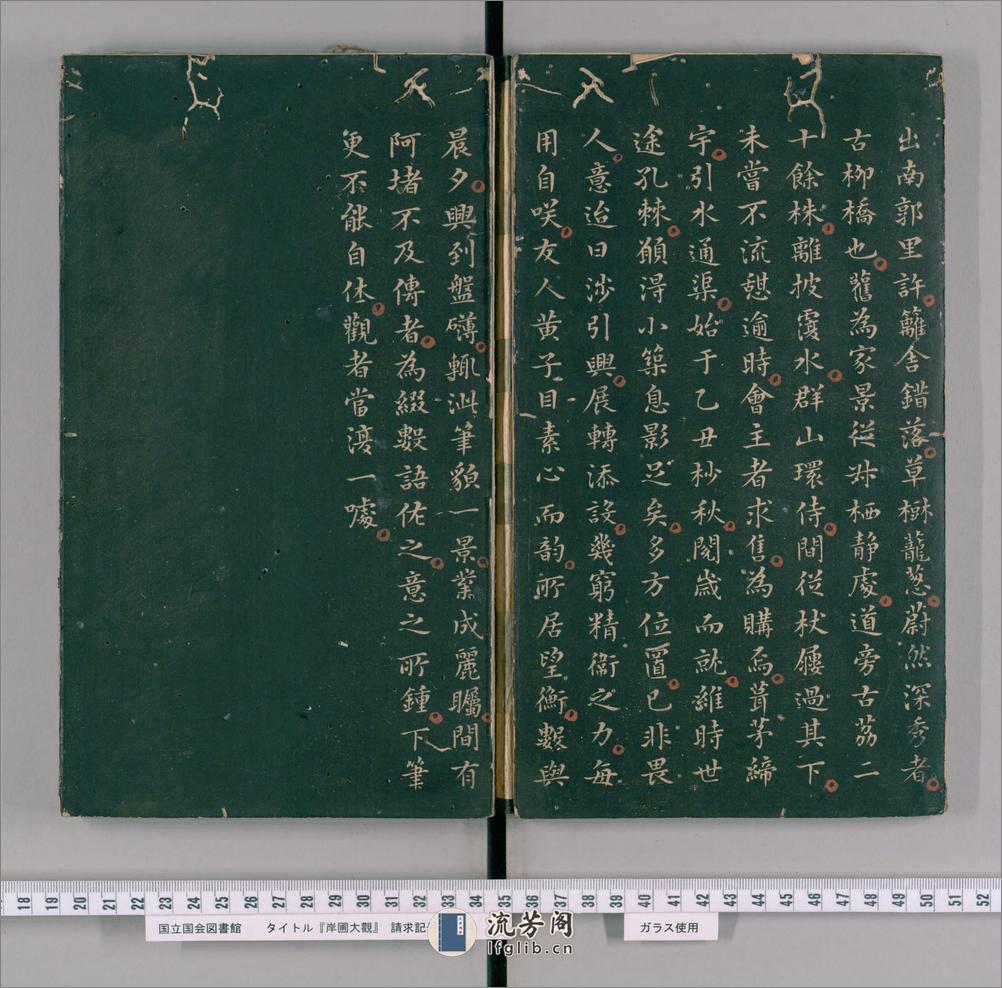 出南郭里許籬舍錯落草樹蘢蔥蔚然深秀者
古柳橋也舊為家景從叔栖静處道旁古荔二
十餘株離披覆水群山環侍間從杖屨過其下
未嘗不流憇逾時會主者求售為購焉葺茅締
宇引水通渠始于乙丑杪秋閱歲而就維時世
途孔棘願得小築息影足矣多方位置已非畏
人意迨日涉引興展轉添設幾窮精衞之力每
用自咲友人黄子目素心而韵所居望衡數與
晨夕興到盤礴輒泚筆貌一景業成麗矚間有
阿堵不及傳者為綴數語佐之意之所鍾下筆
更不能自休觀者當復一噱
18 19 20 21 22 23 24 25 26 27 28 29 30 31 32 33 34 35 36 37 38 39 40 41 42 43 44 45 46 47 48 49 50 51 52
国立国会図書館 タイトル『岸圃大觀』 請求記
ガラス使用
流芳阁
lfglib.cn